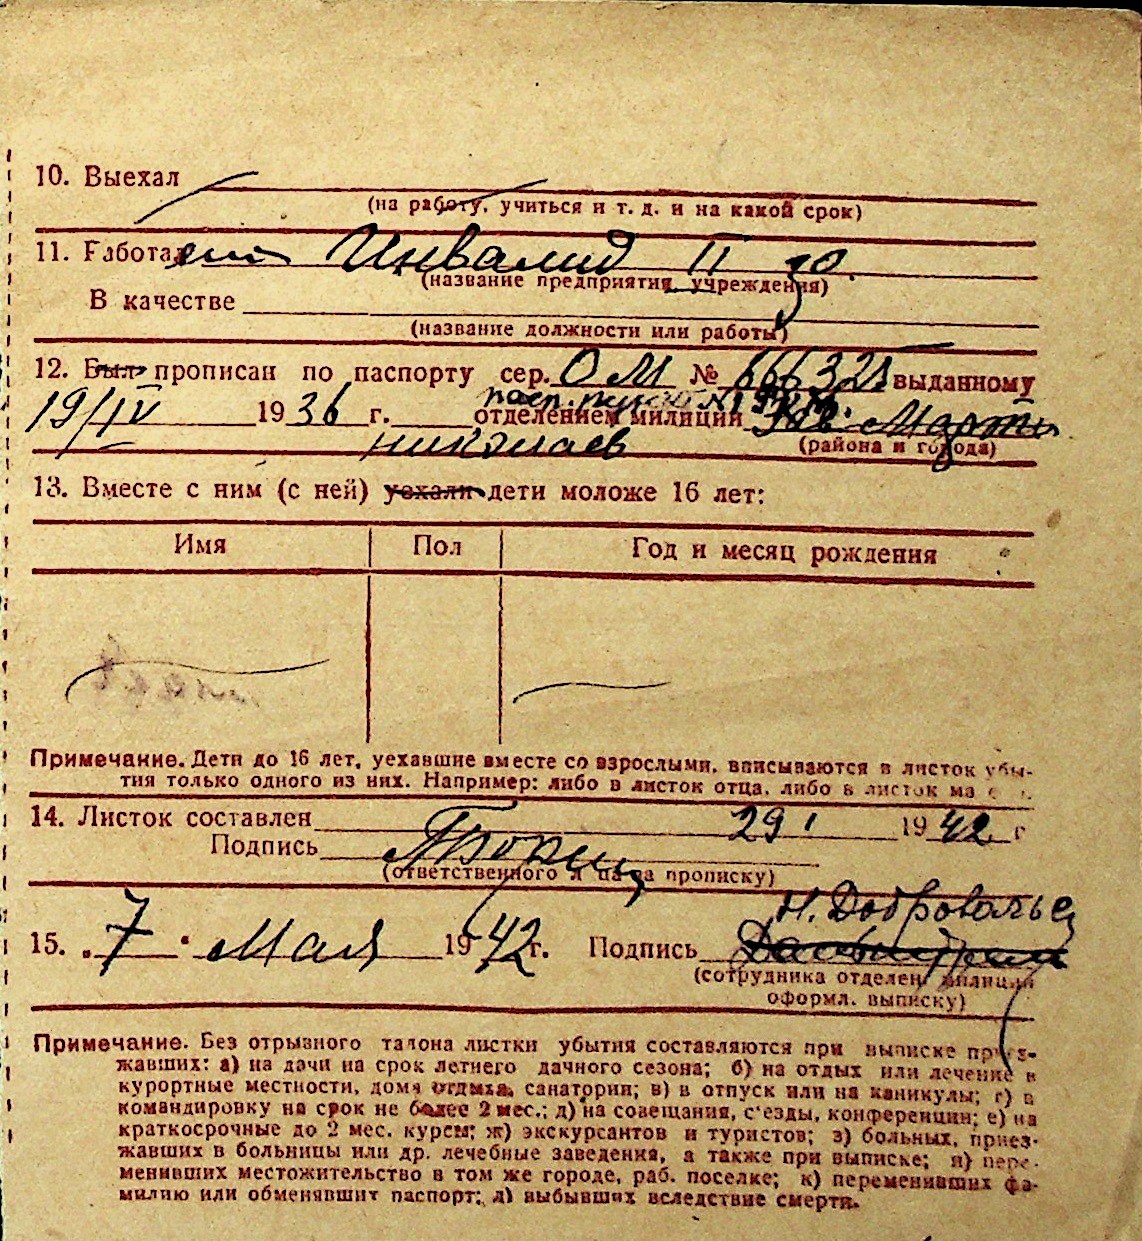 10. Выехал
(на работу, учиться и т. д. и на какой срок)
11. Работал Инвалид II гр.
(название предприятия, учреждения)
В качестве
(название должности или работы)
12. Был прописан по паспорту сер. ОМ № 666325 выданному
19/IV 1936 г. отделением милиции
николаев (района и города)
13. Вместе с ним (с ней) уехали дети моложе 16 лет:
Имя Пол Год и месяц рождения
Примечание. Дети до 16 лет, уехавшие вместе со взрослыми, вписываются в листок убы-
тия только одного из них. Например: либо в листок отца, либо в листок
14. Листок составлен 29 1 1942 г
Подпись
(ответственного лица за прописку)
Н. Добровольс
15. „7" Мая 1942 г. Подпись
(сотрудника отделен. милиции
оформл. выписку)
Примечание. Без отрывного талона листки убытия составляются при выписке приез-
жавших: а) на дачи на срок летнего дачного сезона; б) на отдых или лечение в
курортные местности, дома отдыха, санатории; в) в отпуск или на каникулы; г) в
командировку на срок не более 2 мес.; д) на совещания, с'езды, конференции; е) на
краткосрочные до 2 мес. курсы; ж) экскурсантов и туристов; з) больных, приез-
жавших в больницы или др. лечебные заведения, а также при выписке; и) пере-
менивших местожительство в том же городе, раб. поселке; к) переменивших фа-
милию или обменявших паспорт; л) выбывших вследствие смерти.